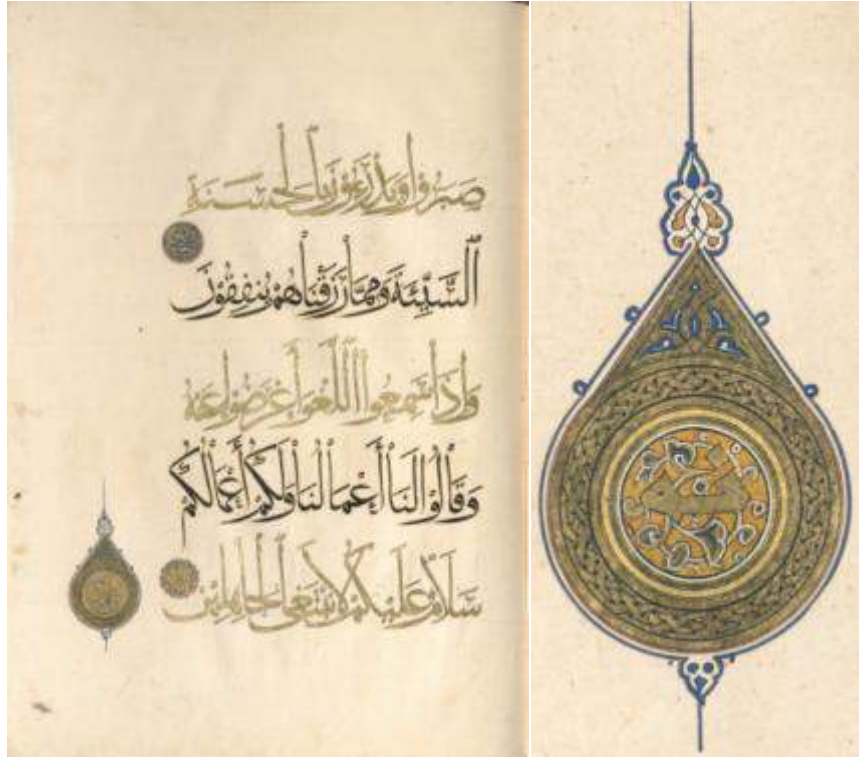 صَبَرُوا وَيَدْرَءُونَ بِالْحَسَنَةِ
السَّيِّئَةَ وَمِمَّا رَزَقْنَاهُمْ يُنفِقُونَ
وَإِذَا سَمِعُوا اللَّغْوَ أَعْرَضُوا عَنْهُ
وَقَالُوا لَنَا أَعْمَالُنَا وَلَكُمْ أَعْمَالُكُمْ
سَلَامٌ عَلَيْكُمْ لَا نَبْتَغِي الْجَاهِلِينَ